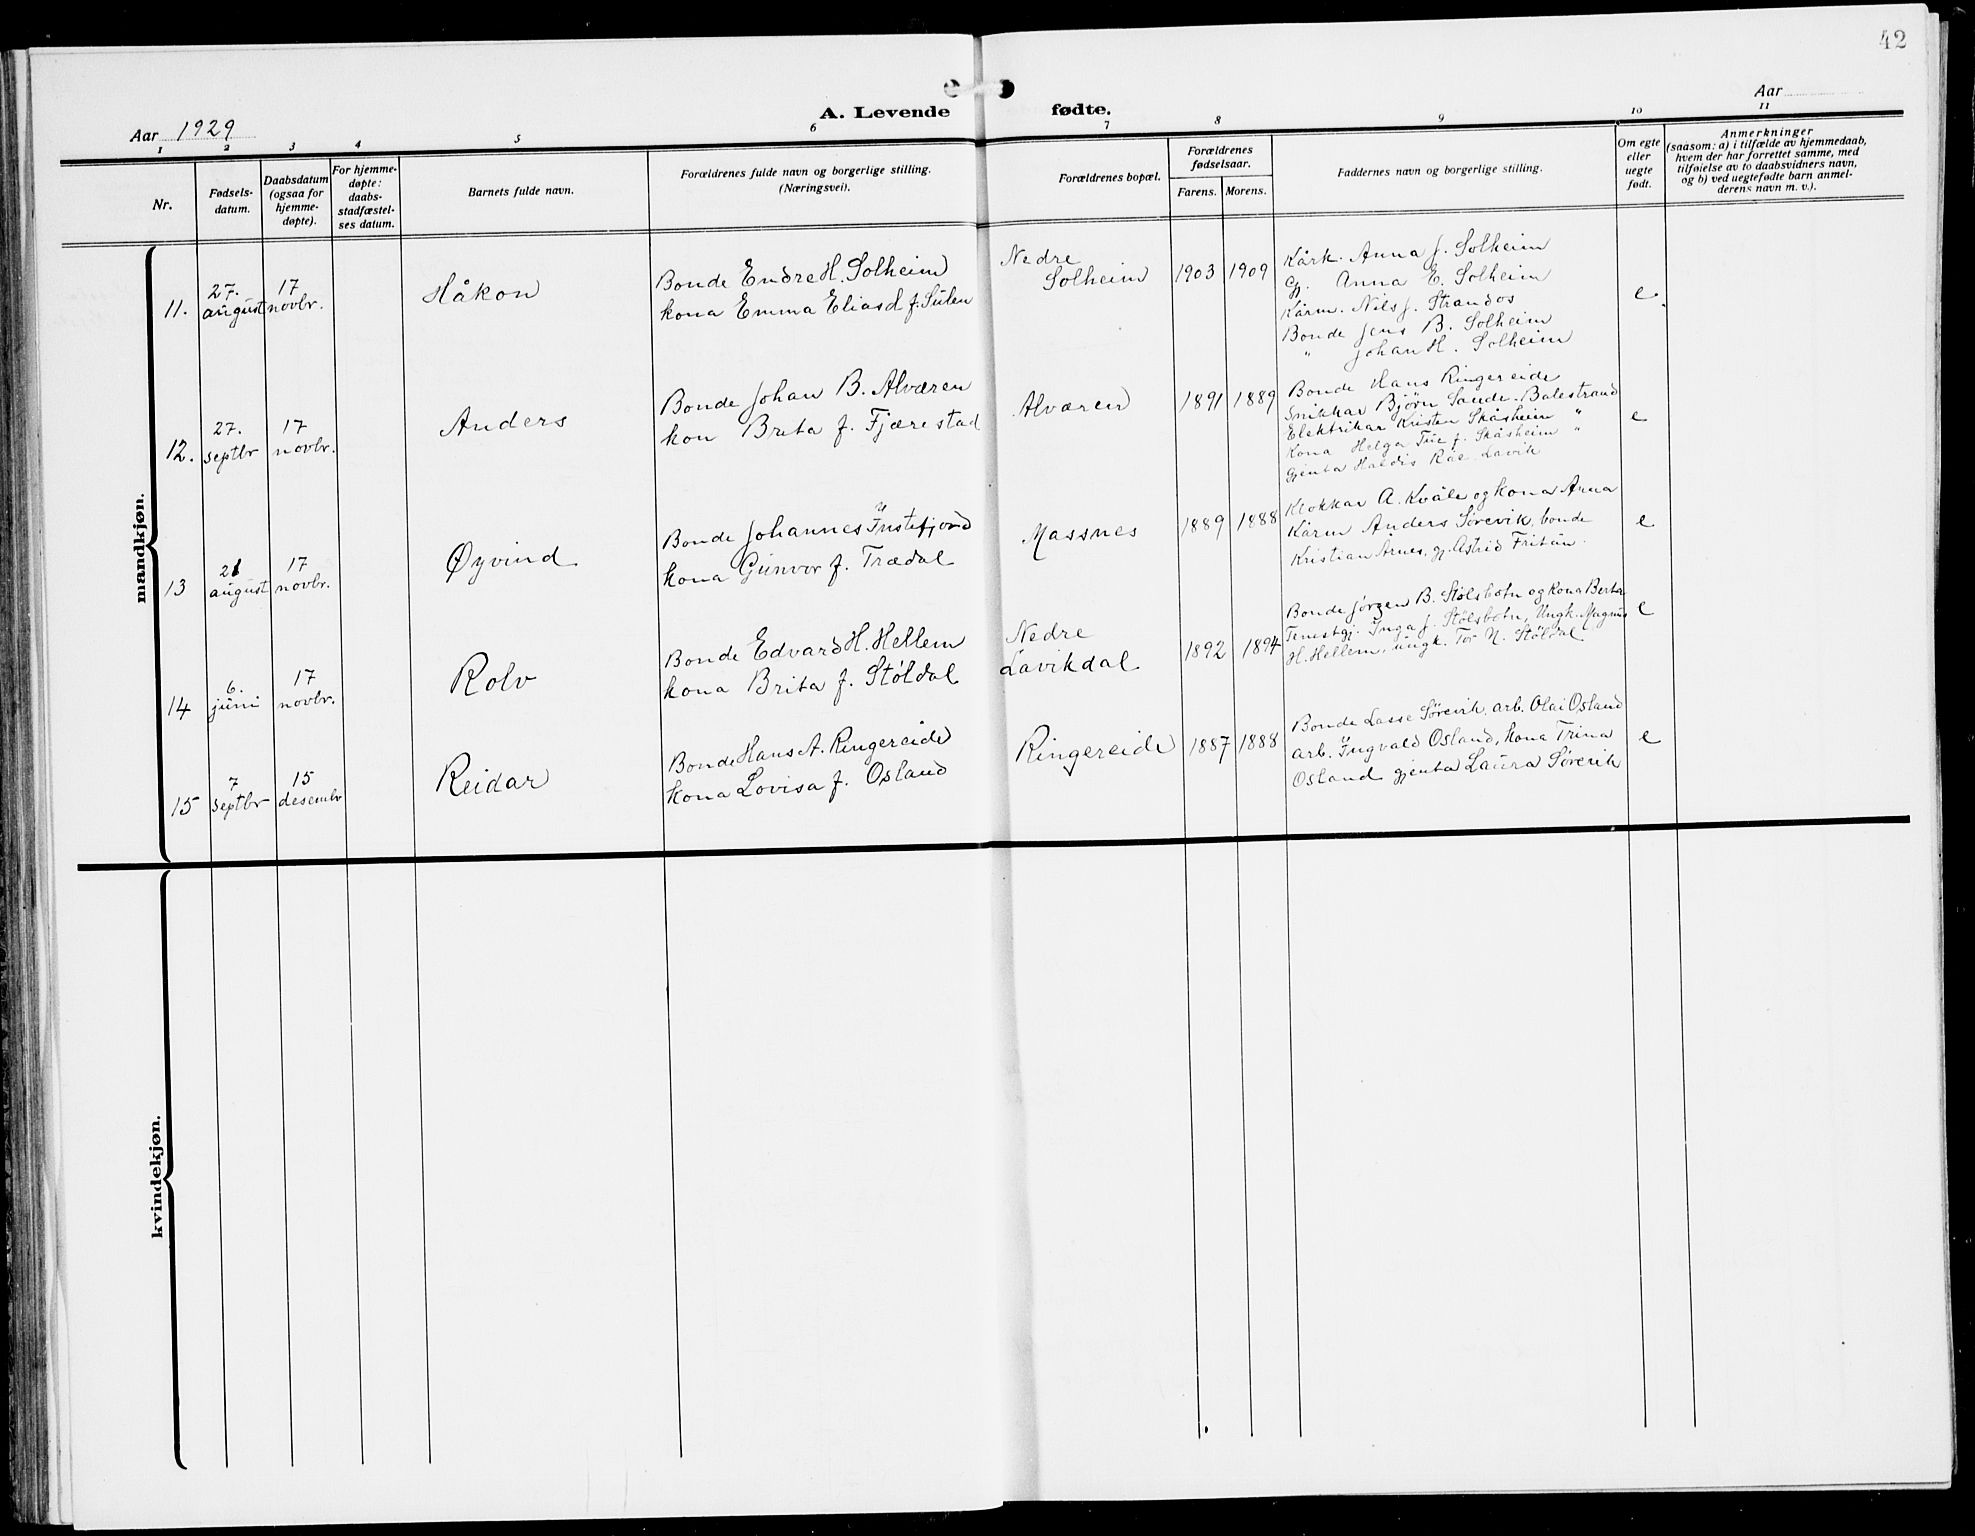 42
A. Levende fødte.
Aar 1929
Aar
1 2 3 4 5 6 7 8 9 10 11
Nr.
Fødsels-
datum.
Daabsdatum
(ogsaa for
hjemme-
døpte).
For hjemme-
døpte:
daabs-
stadfæstel-
ses datum.
Barnets fulde navn.
Forældrenes fulde navn og borgerlige stilling.
(Næringsvei).
Forældrenes bopæl.
Forældrenes
fødselsaar.
Farens. Morens.
Faddernes navn og borgerlige stilling.
Om egte
eller
uegte
født.
Anmerkninger
(saasom: a) i tilfælde av hjemmedaab,
hvem der har forrettet samme, med
tilføielse av to daabsvidners navn,
og b) ved uegtefødte barn anmel-
derens navn m. v.).
mandkjøn.
11.
27.
august
17
novbr.
Håkon
Bonde Endre H. Solheim
kona Emma Eliasd f. Sulen
Nedre
Solheim
1903 1909
Kårk. Anna J. Solheim
Gj. Anna E. Solheim
Kårm. Nils J. Strandos
Bonde Jens B. Solheim
" Johan H. Solheim
e
12.
27.
septbr
17
novbr.
Anders
Bonde Johan B. Alværen
kon Brita f. Fjærestad
Alværen
1891 1889
Bonde Hans Ringereide
Snikkar Bjørn Sande. Balestrand
Elektrikar Kristen Skåsheim "
Kona Helga Tue f. Skåsheim "
Gjenta Haldis Råe Lavik
e
13
21
august
17
novbr.
Øyvind
Bonde Johannes Ystefjord
kona Gunvor f. Trædal
Massnes
1889 1888
Klokkar A. Kvåle og kona Anna
Kårm Anders Sørevik, bonde
Kristian Årnes, gj. Astrid Fritun.
e
14
6.
juni
17
novbr.
Rolv
Bonde Edvard H. Hellem
kona Brita f. Støldal
Nedre
Lavikdal
1892 1894
Bonde Jørgen B. Stølsbotn og kona Berta
Tenestgj. Inga J. Stølsbotn, Ungk. Magnus
H. Hellem, ungk. Tor N. Støldal.
e
15
7
septbr
15
desembr
Reidar
Bonde Hans A. Ringereide
kona Lovisa f. Osland
Ringereide
1887 1888
Bonde Lasse Sørevik, arb. Olai Osland
arb. Ingvald Osland, kona Trina
Osland gjenta Laura Sørevik
e
kvindekjøn.